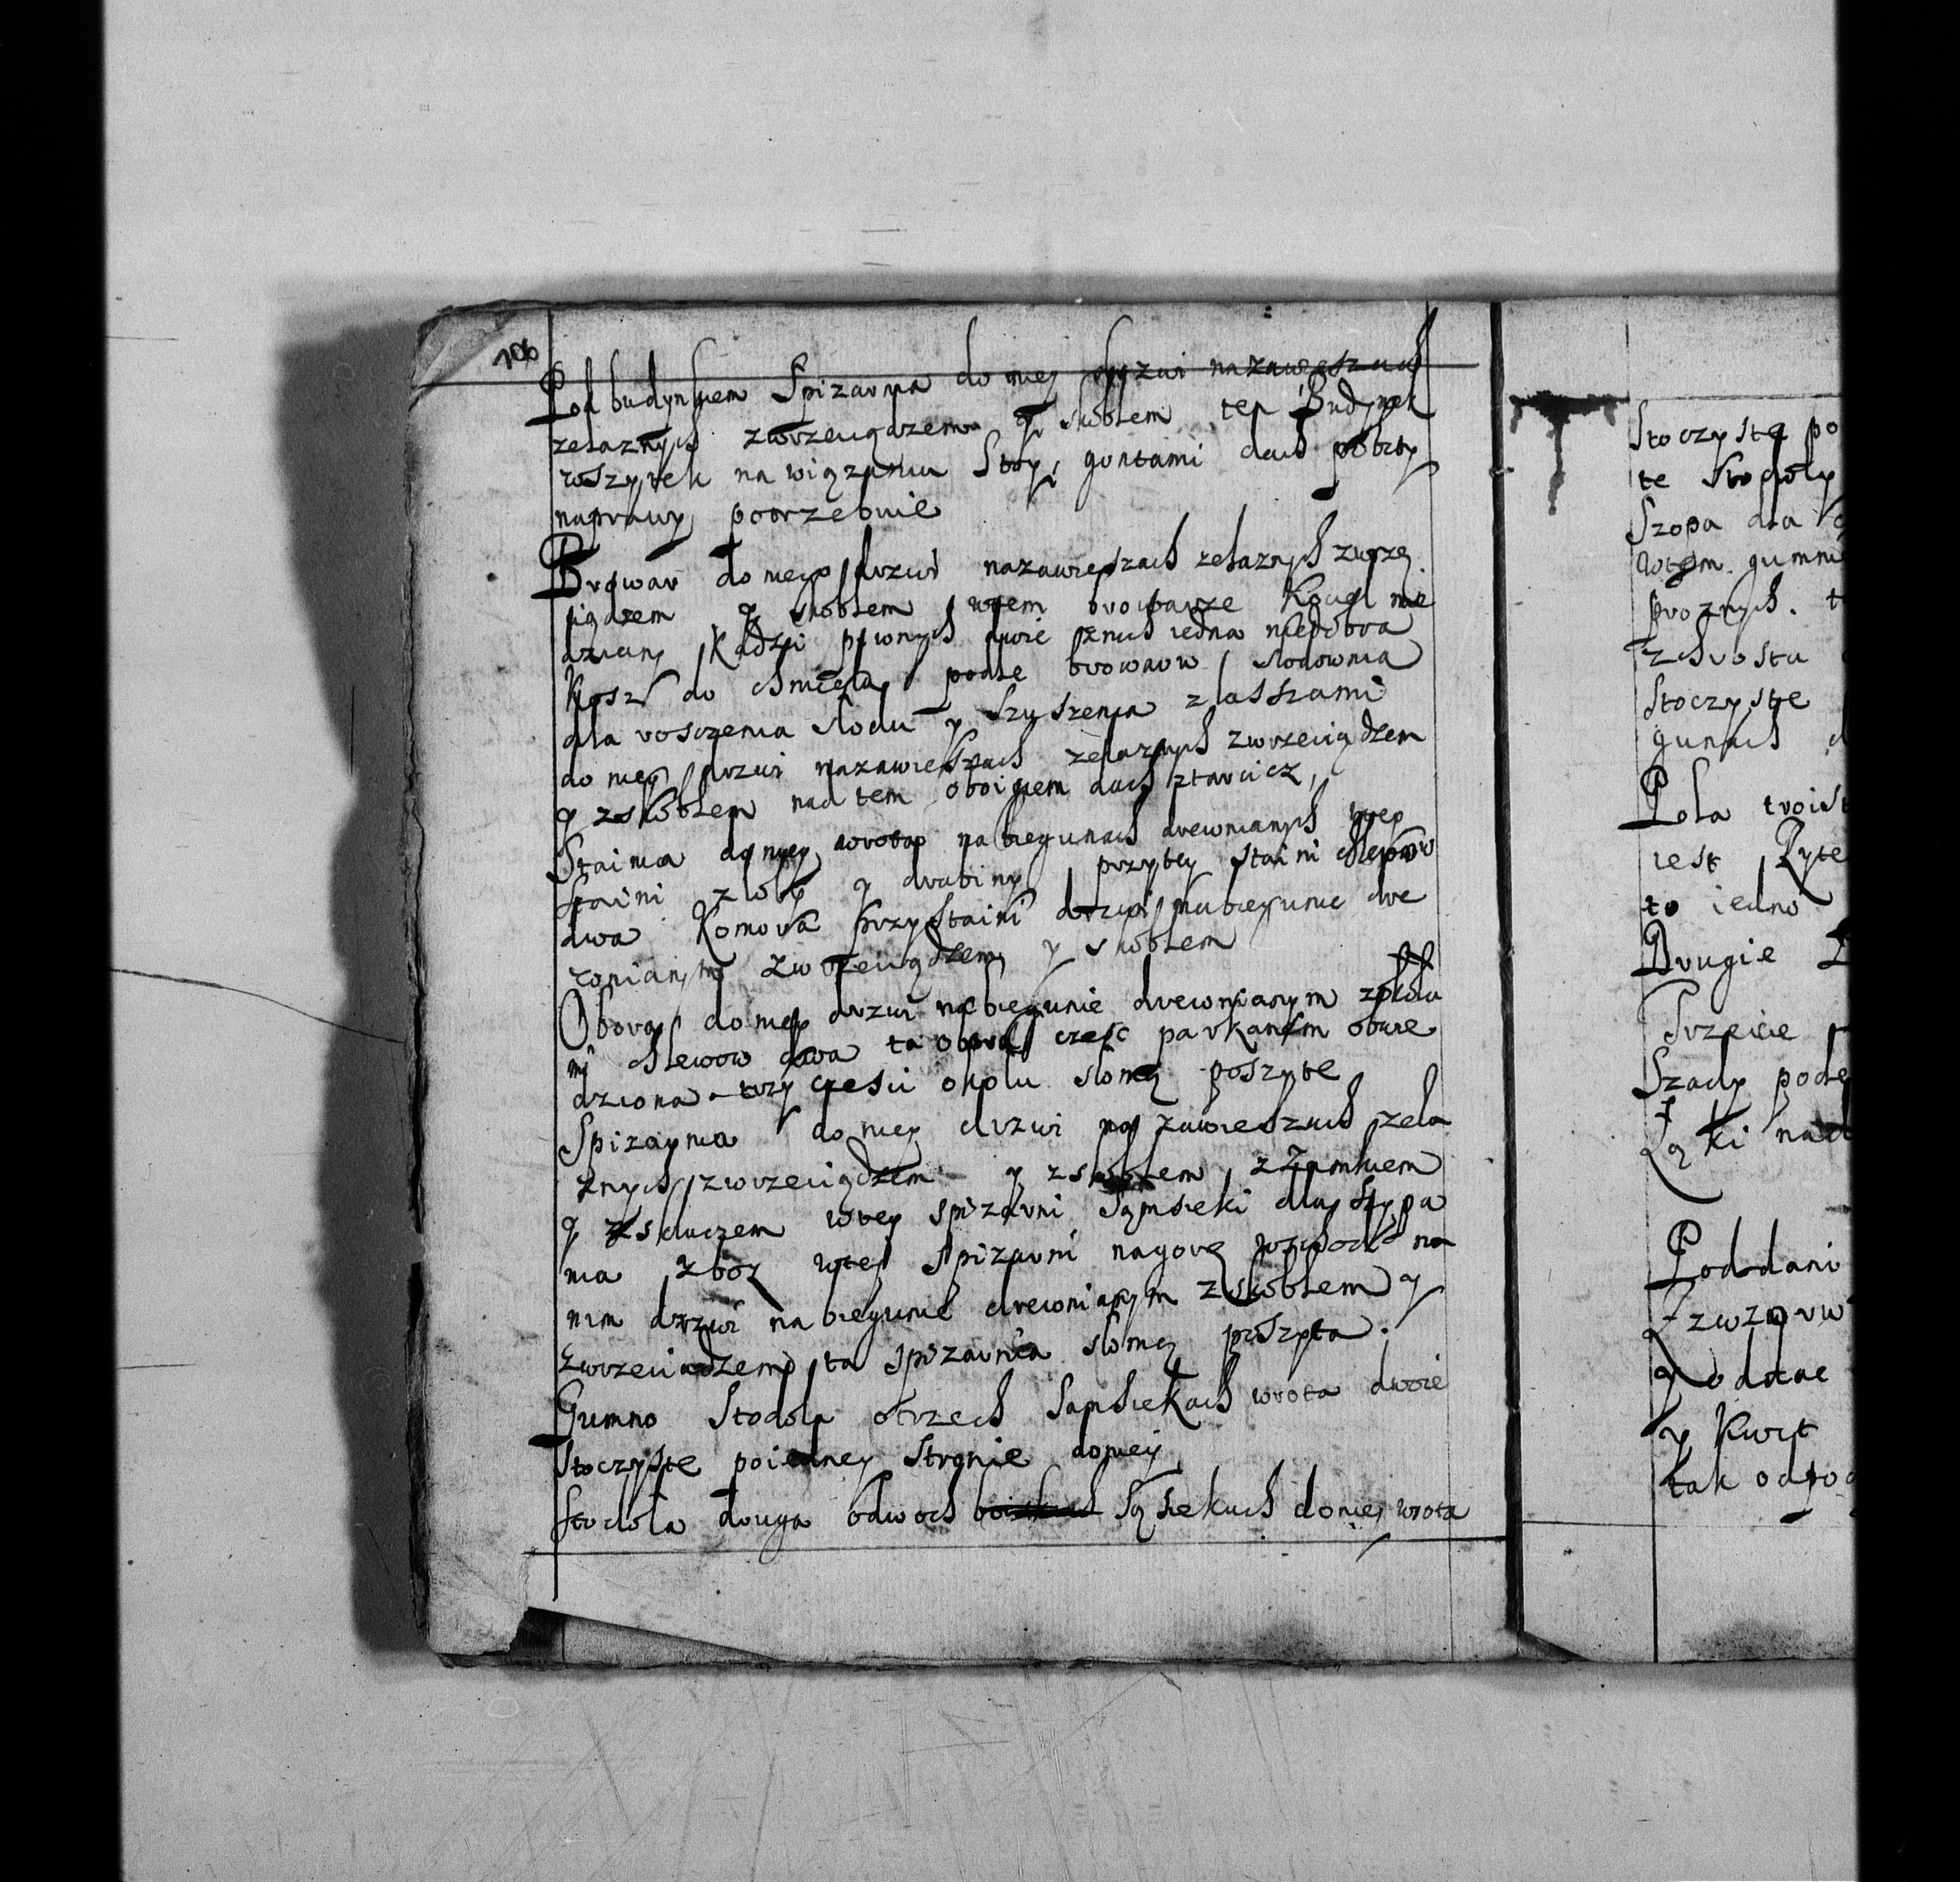 106
Pod budynkiem Spizarnia do niey drzwi nazawiaszach
zelaznych zwrzeciądzem y skoblem ten Budynek
wszytek na wiązaniu Stoy, gontami dach pobity
naprawy potrzebuie
Browar do niego drzwi nazawieszach zelaznych zwrze
ciądzem y skoblem wtem browarze Kociel mie
dziany Kadzi piwnych dwie znich iedna niedobra
Kosz do chmielu podle browaru Slodownia
dla roszczenia slodu y Szuszenia zlassami
do niey drzwi nazawieszach zelaznych zwrzeciądzem
y zskoblem nad tem oboigiem dach ztarcicz,
Stainia do niey wrota nabiegunach drewnianych wtey
Staini zlob y drabiny przytey Staini chlewow
dwa Komora przy Staini drzwi nabiegunie dre
wnianym Zwrzeciądzem y skoblem
Obora do niey drzwi nabiegunie drewnianym zokolu
mi chlewow dwa ta obora częsc parkanem obwie
dziona trzy czesci okolu slomą poszyte
Spizarnia do niey drzwi na zawieszach zela
znych zwrzeciądzem y zskoblem, zZamkiem
y zskluczem wtey spizarni Sąmsieki dla Sypa
nia zboz wtey Spizarni nagorę wschod na
nim drzwi na biegunie drewnianym zskoblem y
zwrzeciadzem ta spizarnia slomą poszyta.
Gumno Stodola otrzech Sąmsiekach wrota dwoie
Stoczyste poiedney Stronie doniey
Stodola druga odwoch Sąsiekach doniey wrota
Stoczyste po
te Stodoly
Szopa dla
wtym gumnie
proznych.
zchrostu
Stoczyste
gunach
Pola troist
iest Zyte
to iedno
Drugie
Trzecie
Szady pode
Ląki nad
Poddani
y oddae
y Kwit
tak odpo